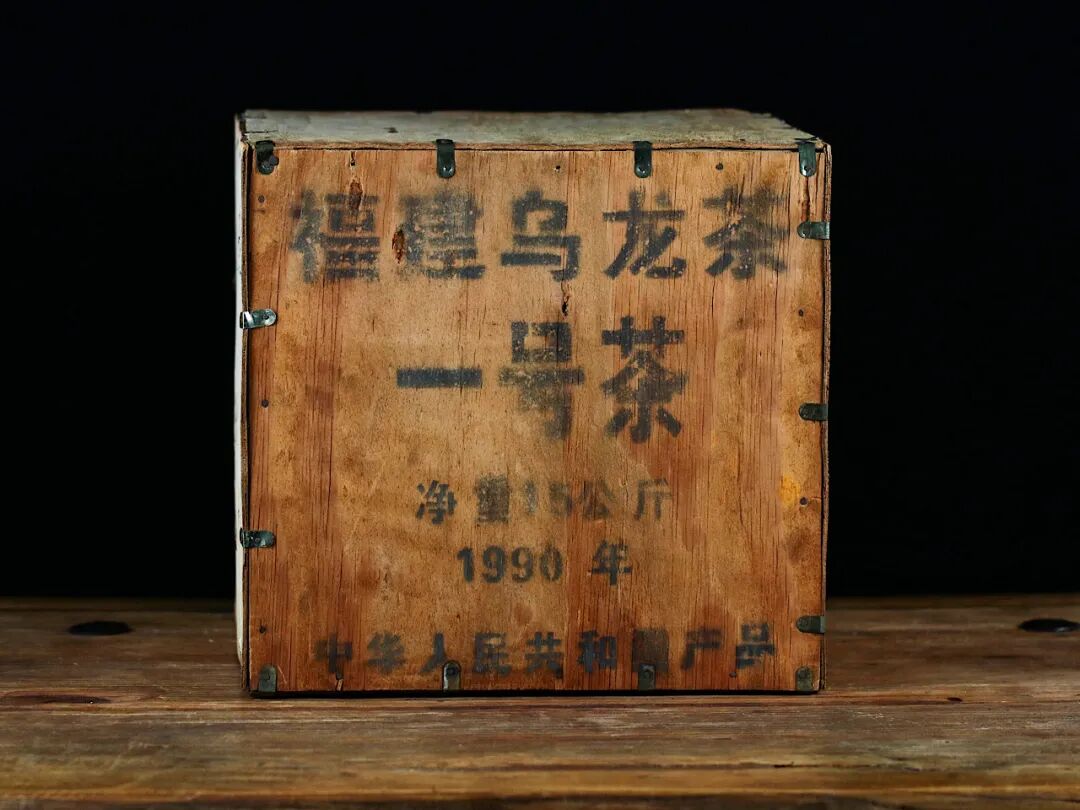 福建乌龙茶
一号茶
净重15公斤
1990 年
中华人民共和国产品